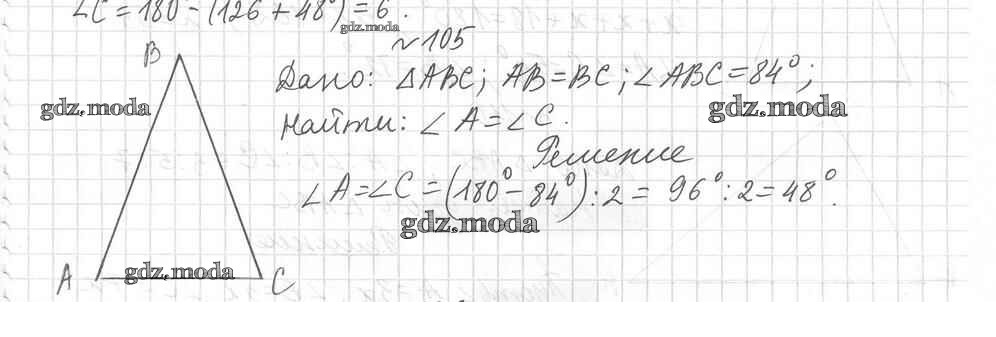 ∠C = 180° - (126 + 48°) = 6°.
gdz.moda
№ 105
B
Дано: △ABC; AB = BC; ∠ABC = 84°;
gdz.moda
gdz.moda
Найти: ∠A = ∠C.
Решение
∠A = ∠C = (180° - 84°) : 2 = 96° : 2 = 48°.
gdz.moda
A
gdz.moda
C